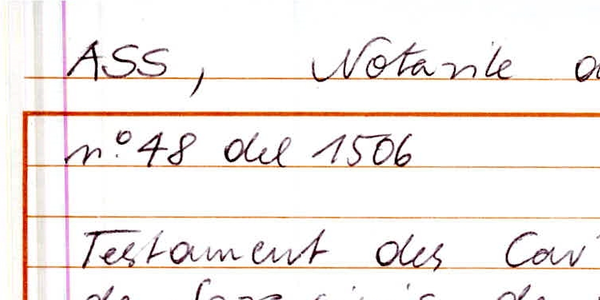 ASS, Notarile
n.° 48 del 1506
Testament des